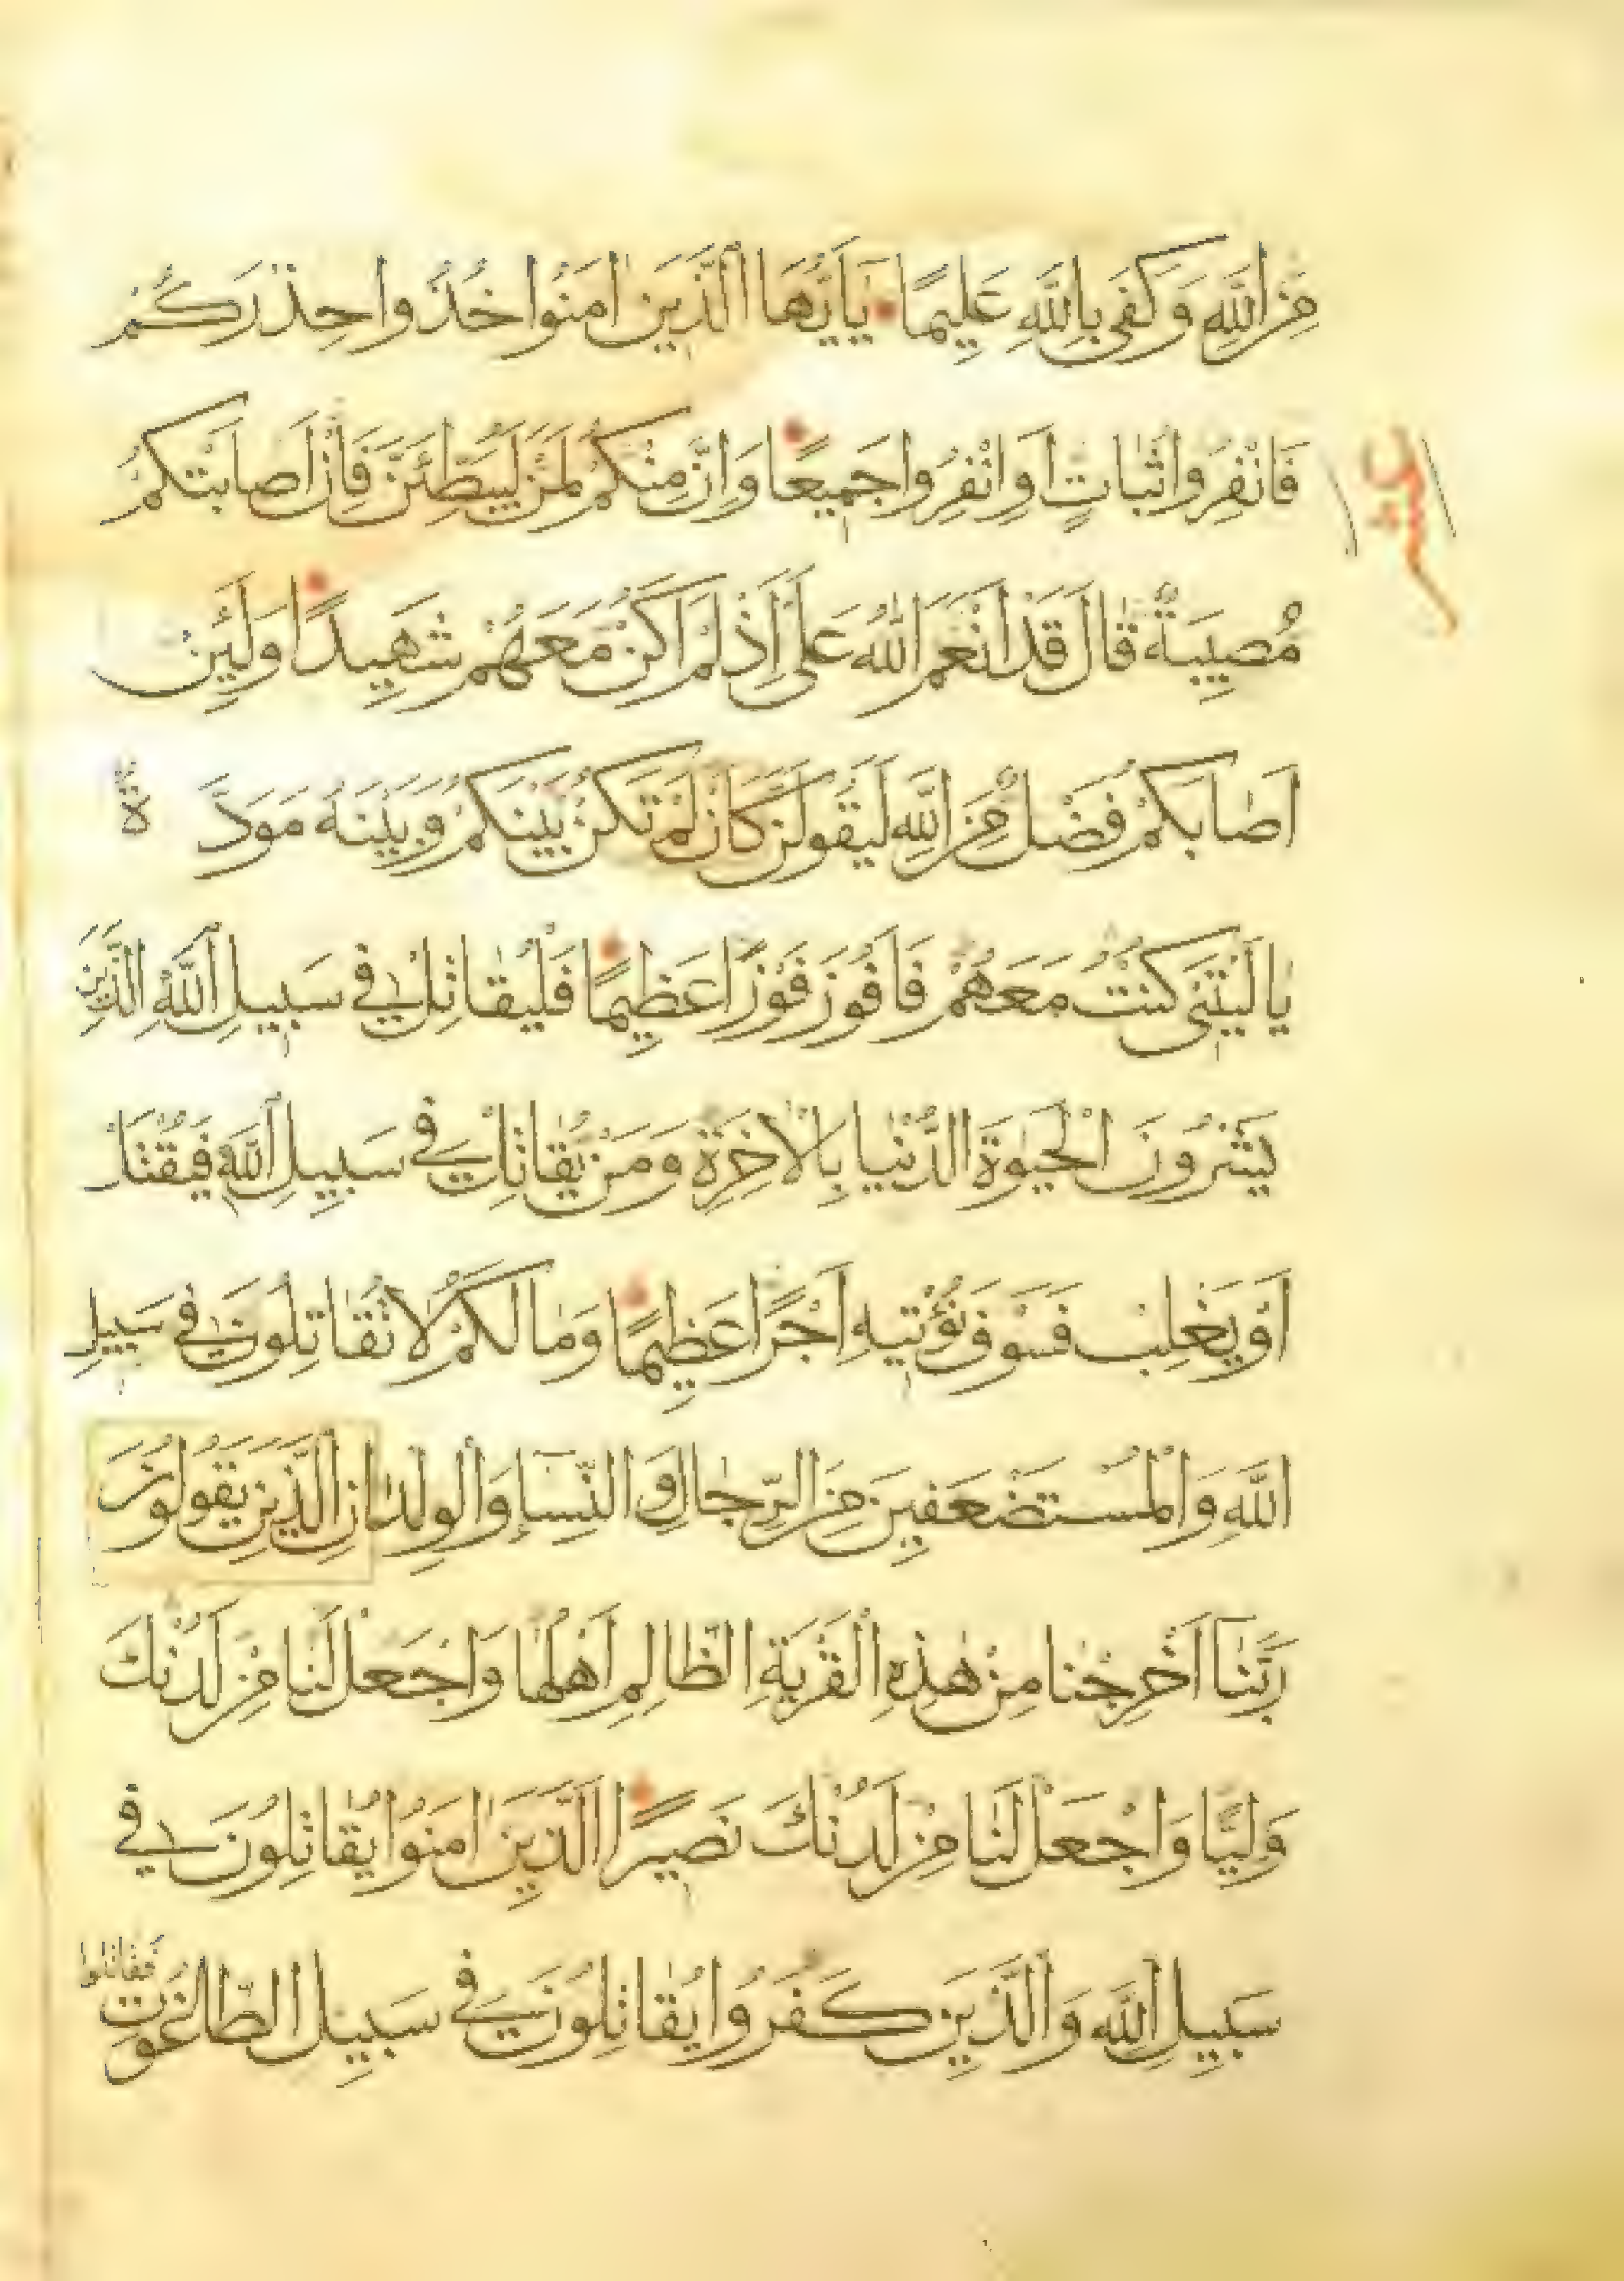 مِنَ اللَّهِ وَكَفَى بِاللَّهِ عَلِيمًا يَا أَيُّهَا الَّذِينَ اٰمَنُوا خُذُوا حِذْرَكُمْ
فَانْفِرُوا ثُبَاتٍ اَوِ انْفِرُوا جَمِيعًا وَاِنَّ مِنْكُمْ لَمَنْ لَيُبَطِّئَنَّ فَاِنْ اَصَابَتْكُمْ
مُصِيبَةٌ قَالَ قَدْ اَنْعَمَ اللّٰهُ عَلَىَّ اِذْ لَمْ اَكُنْ مَعَهُمْ شَهِيدًا وَلَئِنْ
اَصَابَكُمْ فَضْلٌ مِنَ اللَّهِ لَيَقُولَنَّ كَاَنْ لَمْ تَكُنْ بَيْنَكُمْ وَبَيْنَهُ مَوَدَّةٌ
يَا لَيْتَنِى كُنْتُ مَعَهُمْ فَاَفُوزَ فَوْزًا عَظِيمًا فَلْيُقَاتِلْ فِى سَبِيلِ اللَّهِ الَّذِينَ
يَشْرُونَ الْحَيٰوةَ الدُّنْيَا بِالْاٰخِرَةِ وَمَنْ يُقَاتِلْ فِى سَبِيلِ اللَّهِ فَيُقْتَلْ
اَوْ يَغْلِبْ فَسَوْفَ نُؤْتِيهِ اَجْرًا عَظِيمًا وَمَا لَكُمْ لَا تُقَاتِلُونَ فِى سَبِيلِ
اللَّهِ وَالْمُسْتَضْعَفِينَ مِنَ الرِّجَالِ وَالنِّسَاءِ وَالْوِلْدَانِ الَّذِينَ يَقُولُونَ
رَبَّنَا اَخْرِجْنَا مِنْ هٰذِهِ الْقَرْيَةِ الظَّالِمِ اَهْلُهَا وَاجْعَلْ لَنَا مِنْ لَدُنْكَ
وَلِيًّا وَاجْعَلْ لَنَا مِنْ لَدُنْكَ نَصِيرًا الَّذِينَ اٰمَنُوا يُقَاتِلُونَ فِى
سَبِيلِ اللَّهِ وَالَّذِينَ كَفَرُوا يُقَاتِلُونَ فِى سَبِيلِ الطَّاغُوتِ فَقَاتِلُوا